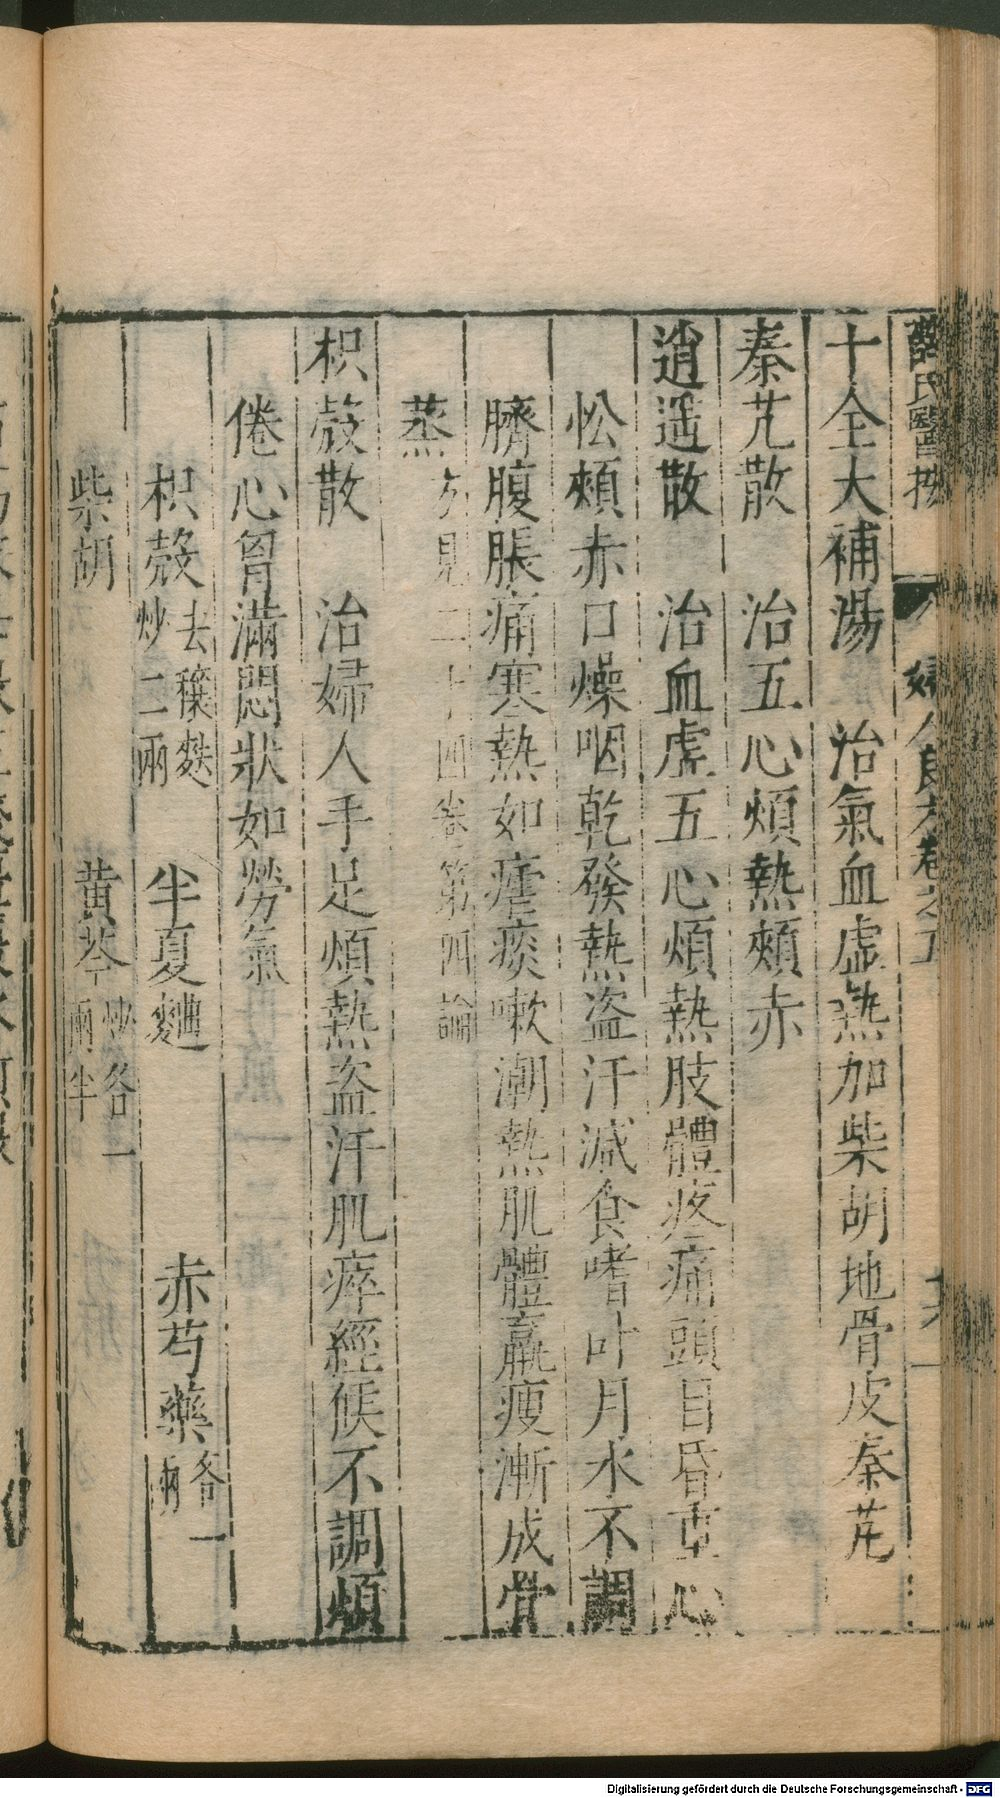 薛氏醫按 婦人良方卷之五 十六
十全大補湯 治氣血虛熱加柴胡地骨皮秦艽
秦艽散 治五心煩熱頰赤
逍遥散 治血虛五心煩熱肢體疼痛頭目昏重心
忪頰赤口燥咽乾發熱盗汗減食嗜卧月水不調
臍腹脹痛寒熱如瘧痰嗽潮熱肌體羸瘦漸成骨
蒸 方見二十四卷第四論
枳殼散 治婦人手足煩熱盗汗肌瘁經候不調煩
倦心胷滿悶狀如勞氣
枳殼 去穰麩炒二兩 半夏麯 赤芍藥 各一兩
柴胡 黄芩 炒各一兩半
Digitalisierung gefördert durch die Deutsche Forschungsgemeinschaft - DFG